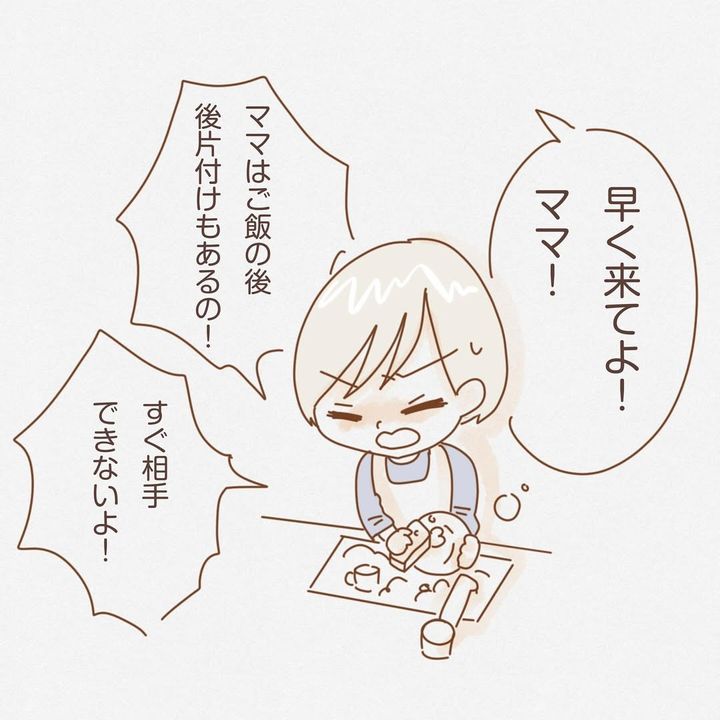 早く来てよ！
ママ！
ママはご飯の後
後片付けもあるの！
すぐ相手
できないよ！